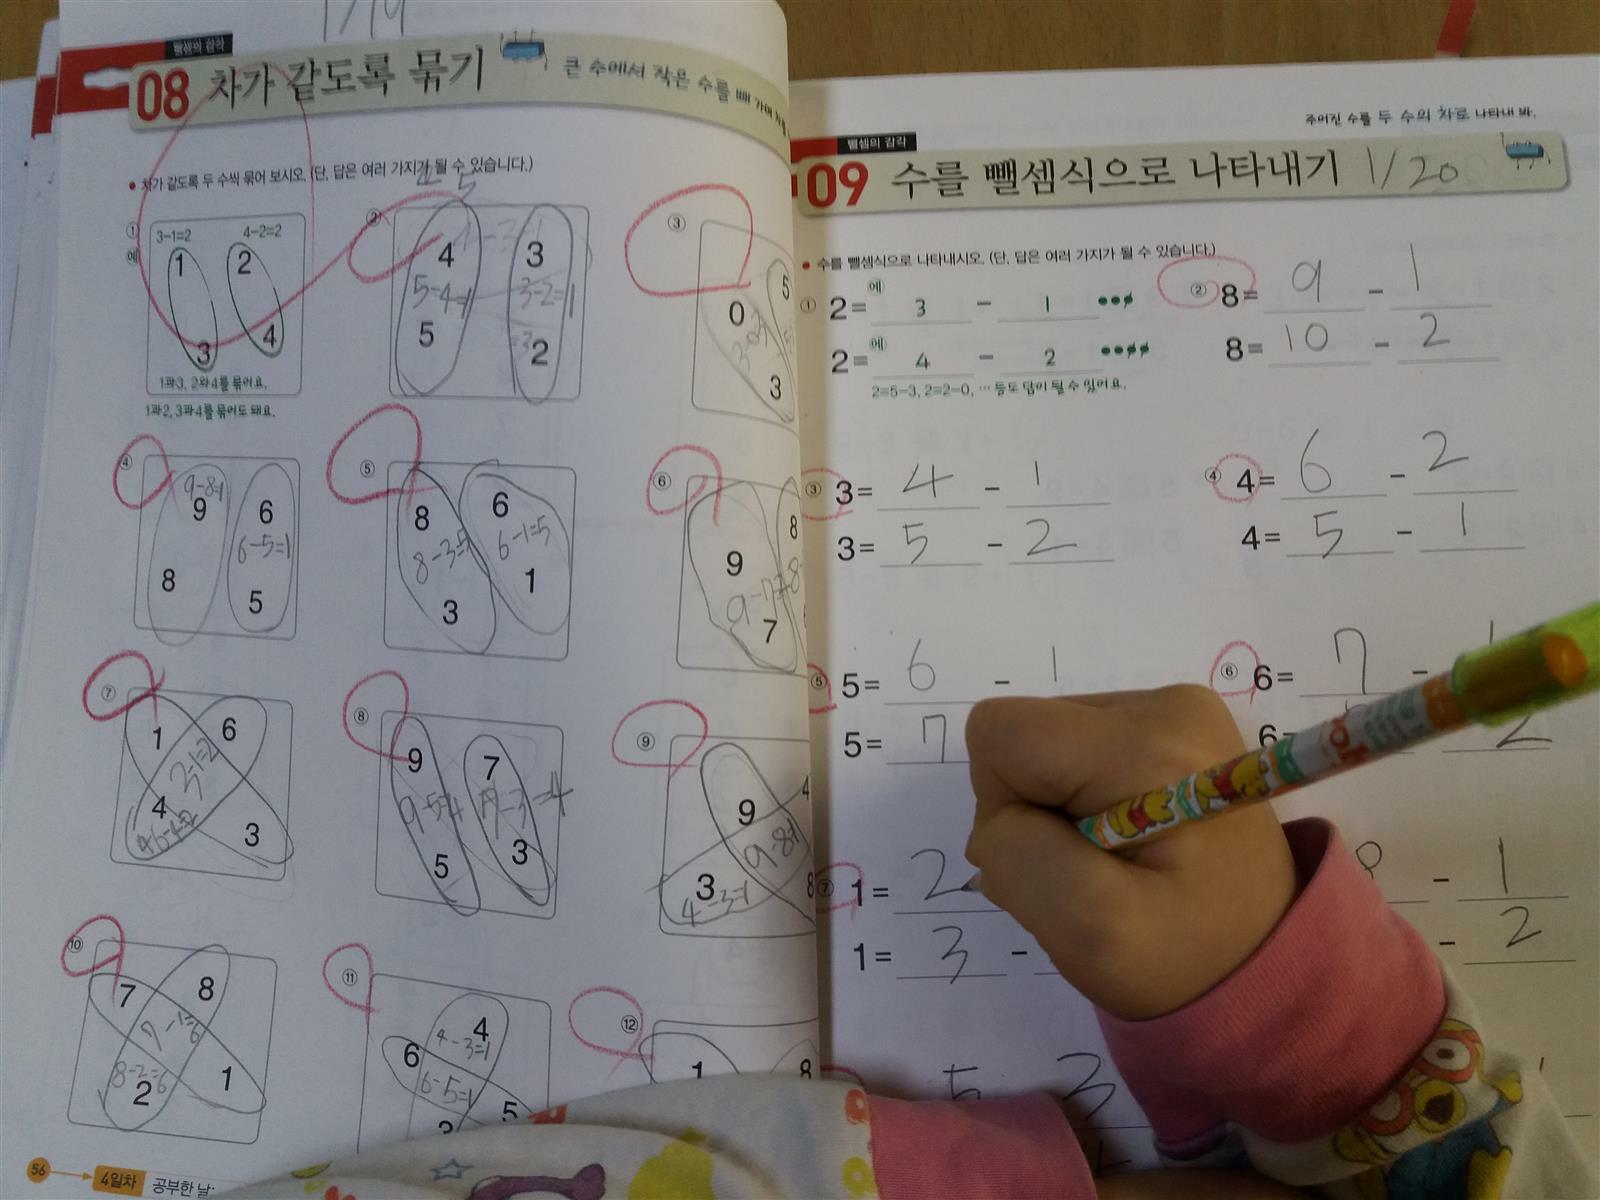 1/19
뺄셈의 감각
08 차가 같도록 묶기
큰 수에서 작은 수를 빼
• 차가 같도록 두 수씩 묶어 보시오. (단, 답은 여러 가지가 될 수 있습니다.)
① 예 3-1=2 4-2=2
1 2
3 4
1과3, 2와4를 묶어요.
1과2, 3과4를 묶어도 돼요.
②
4 3
5-4=1 3-2=1
5 2
③
5
0
3
④
9-8=1
9 6
6-5=1
8 5
⑤
8 6
8-3=5 6-1=5
3 1
⑥
8
9
7
⑦
1 6
3-1=2
4 3
6-4=2
⑧
9 7
9-5=4 7-3=4
5 3
⑨
9 4
9-8=1
3 8
4-3=1
⑩
7 8
7-1=6
8-2=6
2 1
⑪
4
4-3=1
6
6-5=1
5
⑫
1 8
56 4일차 공부한 날
주어진 수를 두 수의 차로 나타내 봐.
뺄셈의 감각
09 수를 뺄셈식으로 나타내기 1/20
• 수를 뺄셈식으로 나타내시오. (단, 답은 여러 가지가 될 수 있습니다.)
① 2= 예 3 - 1
2= 예 4 - 2
2=5-3, 2=2-0, … 등도 답이 될 수 있어요.
② 8= 9 - 1
8= 10 - 2
③ 3= 4 - 1
3= 5 - 2
④ 4= 6 - 2
4= 5 - 1
⑤ 5= 6 - 1
5= 7
⑥ 6= 7 - 1
6= 2
⑦ 1= 2
1= 3 -
8 - 1
- 2
5 3